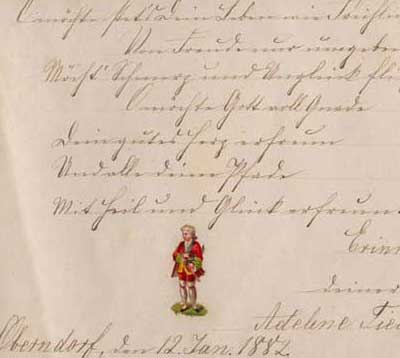 O möchte stets Dein Leben wie Frühlin
Von Freude nur umgeben
Möcht' Schmerz und Unglück flie
O möchte Gott voll Gnade
Dein gutes Herz erfreun
Und alle deine Pfade
Mit Heil und Glück erfreun.
Erinn
deiner
Adeline Fied
Oberndorf, den 12. Jan. 1882